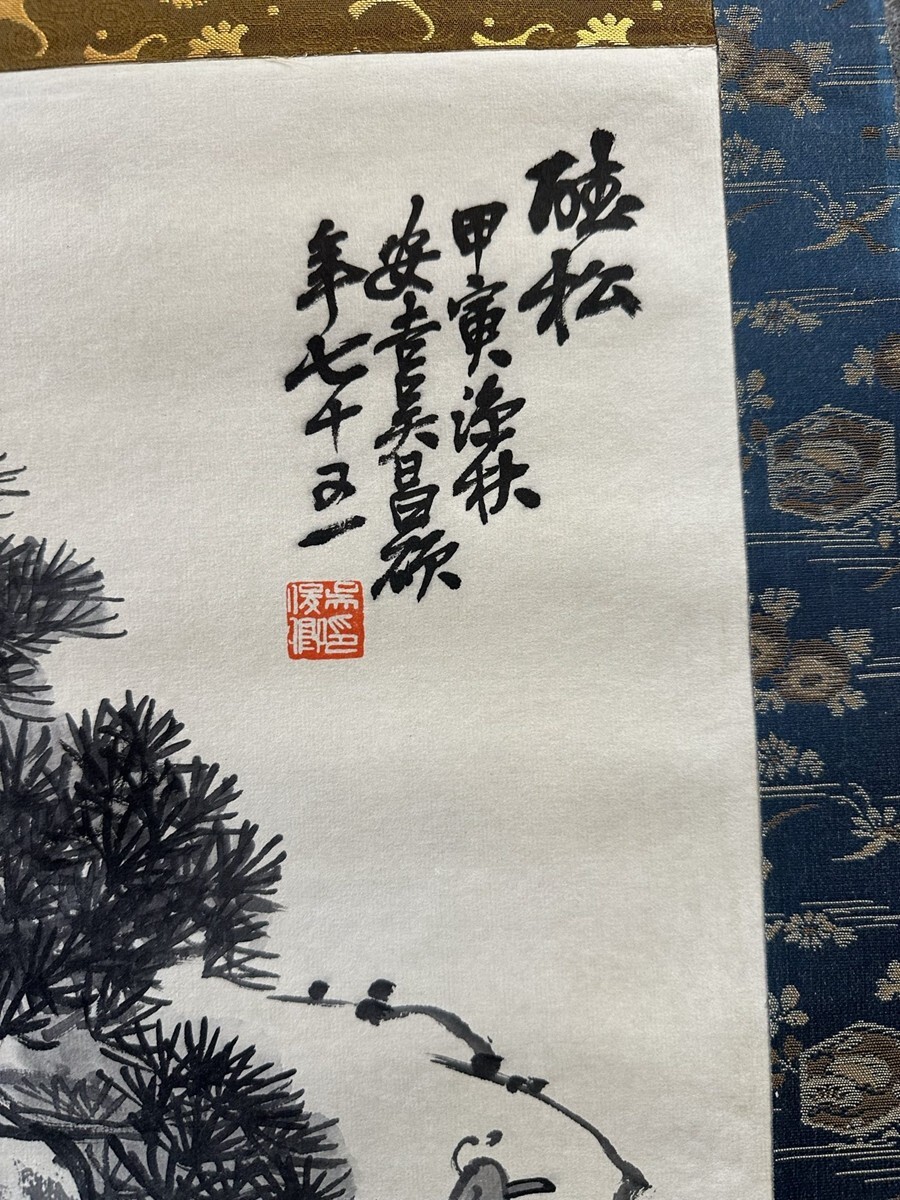 松
甲寅秋
安吉吳昌碩
年七十又一
吳俊卿印